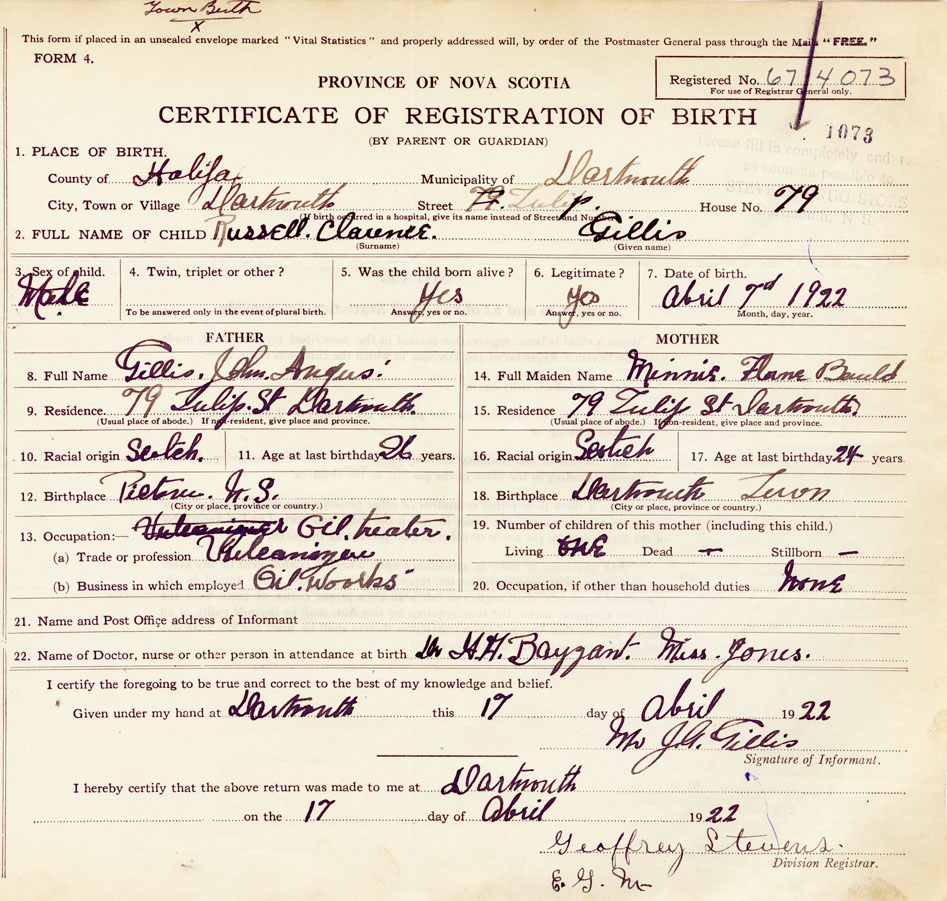 Town Birth
X
This form if placed in an unsealed envelope marked "Vital Statistics" and properly addressed will, by order of the Postmaster General pass through the Mail "FREE."
FORM 4.
Registered No. 67/4073
For use of Registrar General only.
PROVINCE OF NOVA SCOTIA
CERTIFICATE OF REGISTRATION OF BIRTH
1073
(BY PARENT OR GUARDIAN)
Please fill in completely and
as soon as possible to
STEVENS DRUG STORE
N. S.
1. PLACE OF BIRTH.
County of Halifax Municipality of Dartmouth
City, Town or Village Dartmouth Street 79 Tulip. House No. 79
(If birth occurred in a hospital, give its name instead of Street and Number)
2. FULL NAME OF CHILD Russell. Clarence. Gillis
(Surname) (Given name)
3. Sex of child. 4. Twin, triplet or other? 5. Was the child born alive? 6. Legitimate? 7. Date of birth.
Male Yes yes Abril 7d 1922
To be answered only in the event of plural birth. Answer, yes or no. Answer, yes or no. Month, day, year.
FATHER MOTHER
8. Full Name Gillis. John. Angus. 14. Full Maiden Name Minnie. Flane Bauld
9. Residence. 79 Tulip. St Dartmouth. 15. Residence 79 Tulip St Dartmouth.
(Usual place of abode.) If non-resident, give place and province. (Usual place of abode.) If non-resident, give place and province.
10. Racial origin Scotch. 11. Age at last birthday 26 years. 16. Racial origin Scotich 17. Age at last birthday 24 years
12. Birthplace Pictou. N.S. 18. Birthplace Dartmouth Town
(City or place, province or country.) (City or place, province or country.)
13. Occupation:— Vulcanizer Oil. heater. 19. Number of children of this mother (including this child.)
(a) Trade or profession Vulcanizer Living one Dead — Stillborn —
(b) Business in which employed Oil. Woorks 20. Occupation, if other than household duties None
21. Name and Post Office address of Informant
22. Name of Doctor, nurse or other person in attendance at birth Dr H.H. Bayzant. Miss. Jones.
I certify the foregoing to be true and correct to the best of my knowledge and belief.
Given under my hand at Dartmouth this 17 day of Abril 1922
Mr J.A. Gillis
Signature of Informant.
I hereby certify that the above return was made to me at Dartmouth
on the 17 day of Abril 1922
Geoffrey Stevens.
Division Registrar.
E. G. M